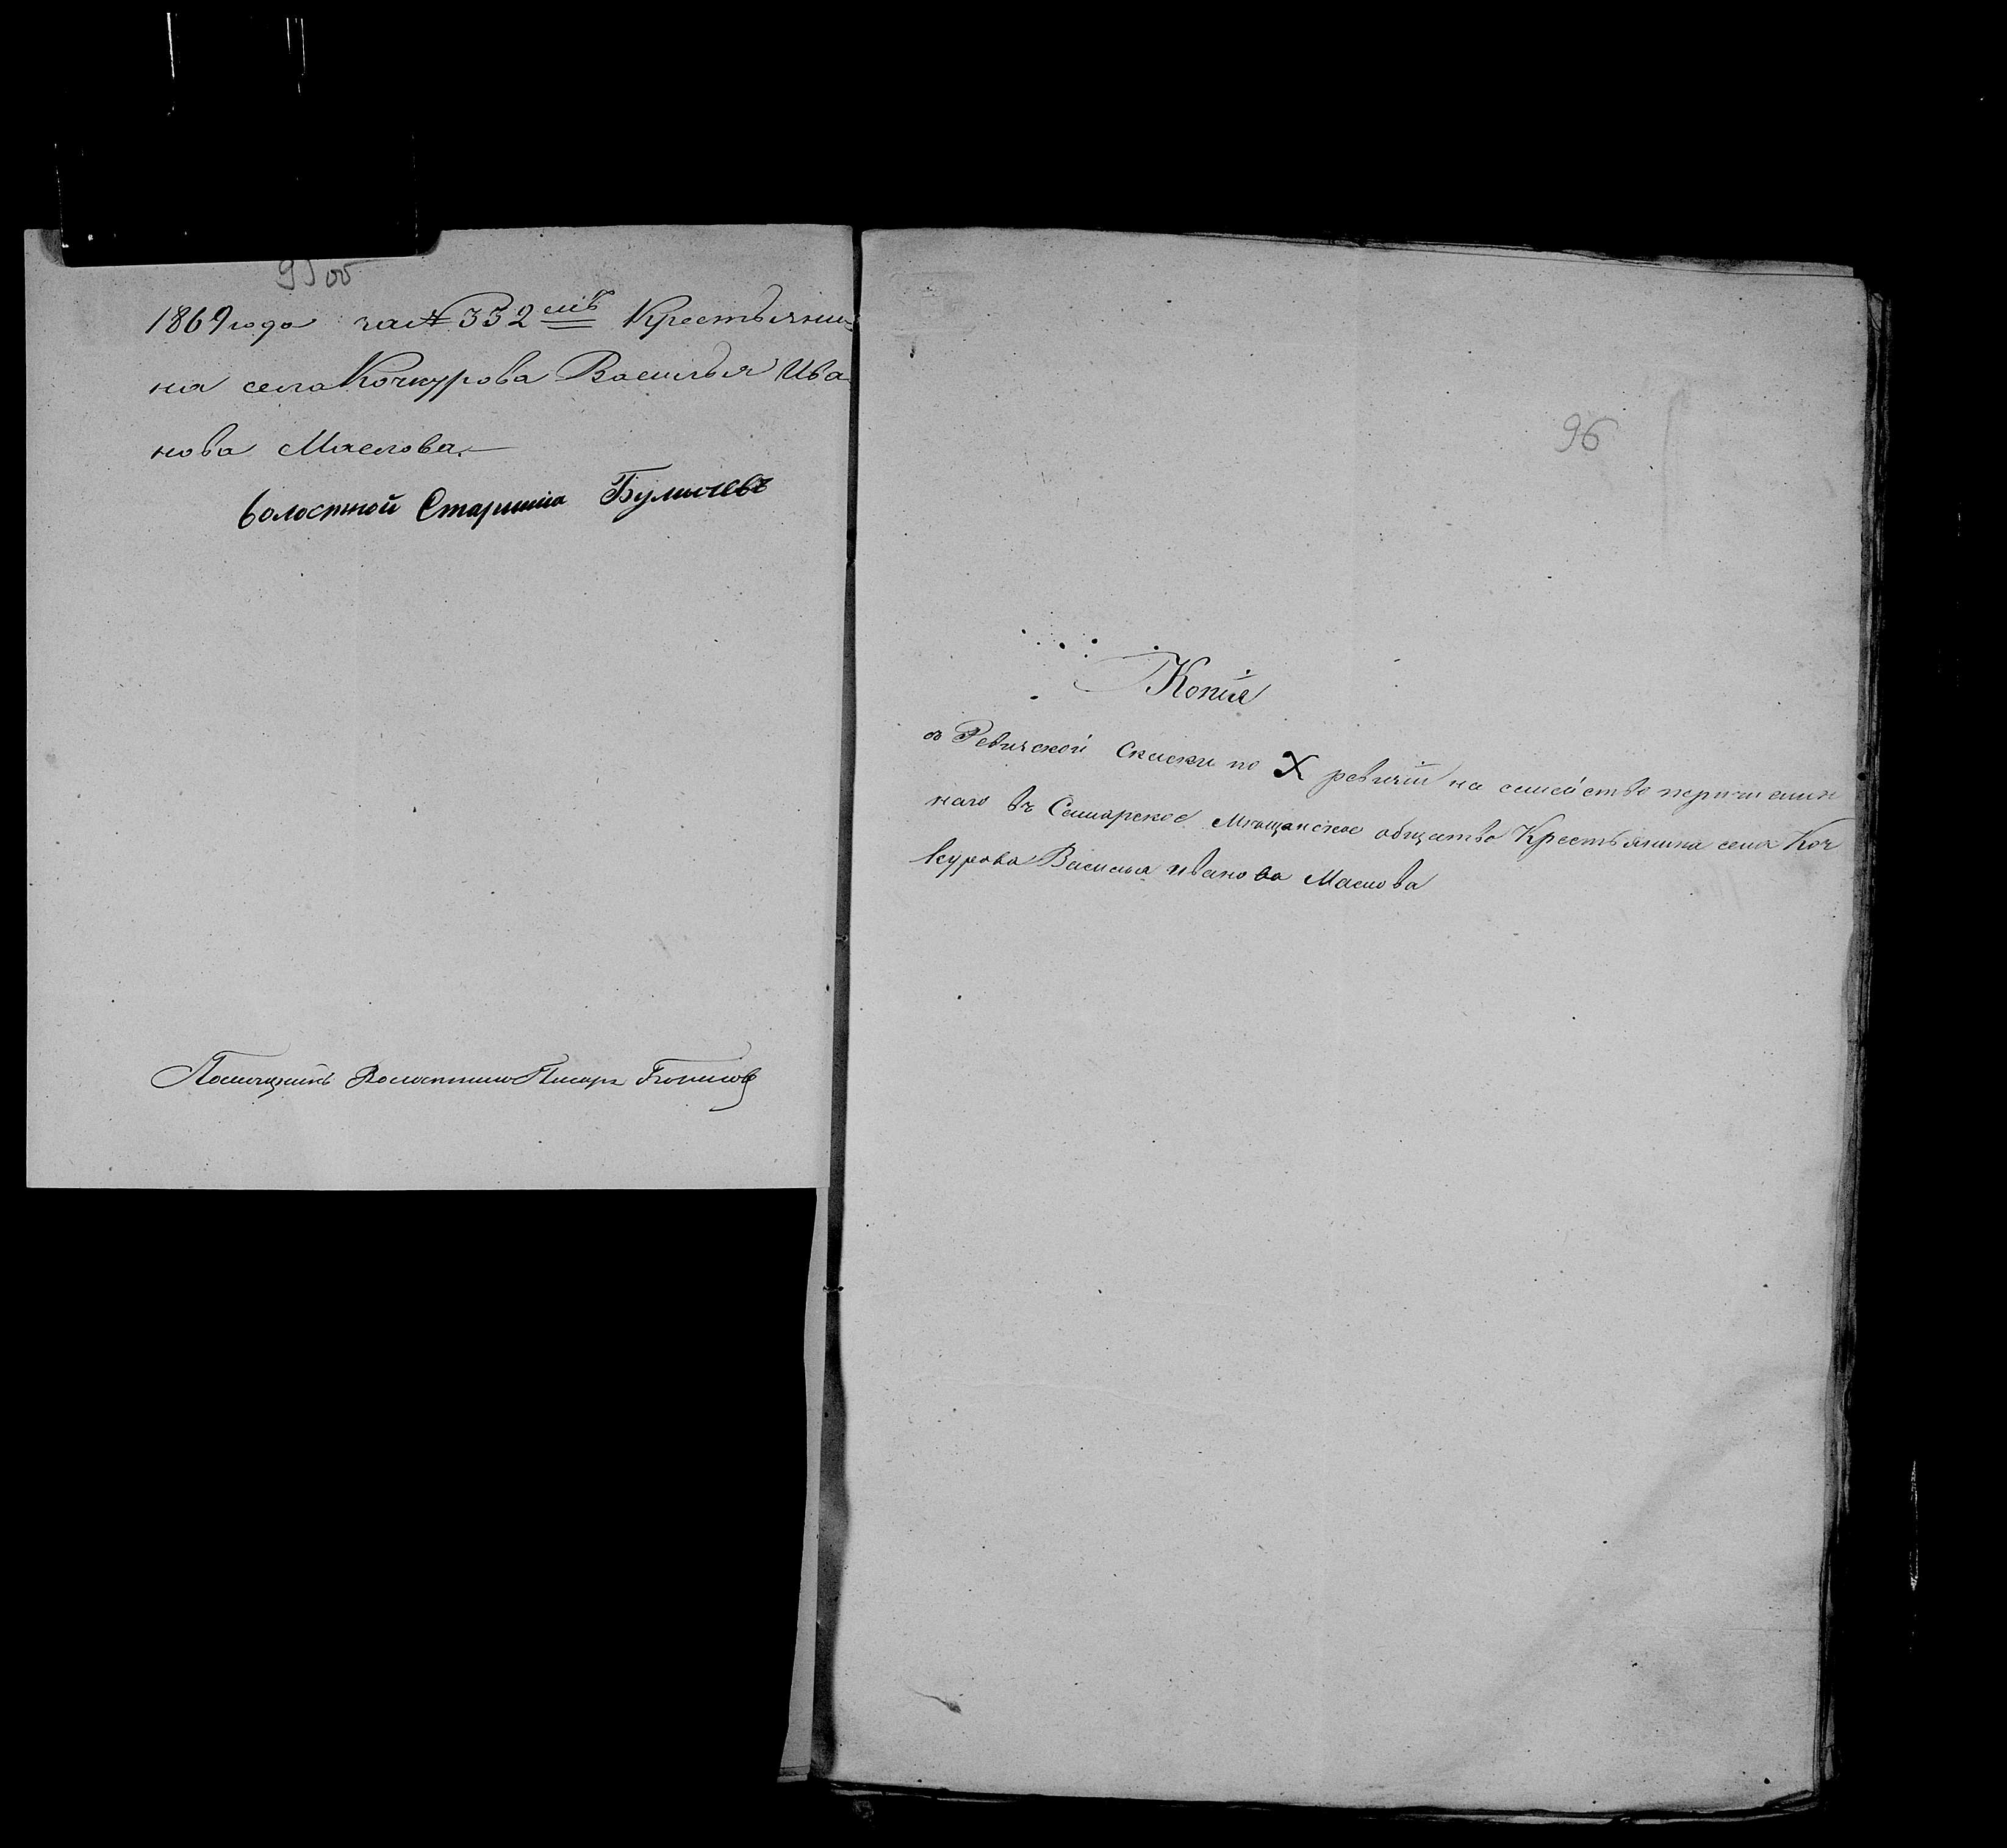 95 об
1869 года за № 332 мъ Крестьяни-
на села Кочкурова Василья Ива
нова Маслова.
Волостной Старшина Буличевъ
Помощникъ Волостнаго Писаря
96
Копія
съ Ревизской Скаски по X ревизіи на семейство перечислен
наго въ Самарское Мещанское общество Крестьянина села Коч
курова Василья Иванова Маслова